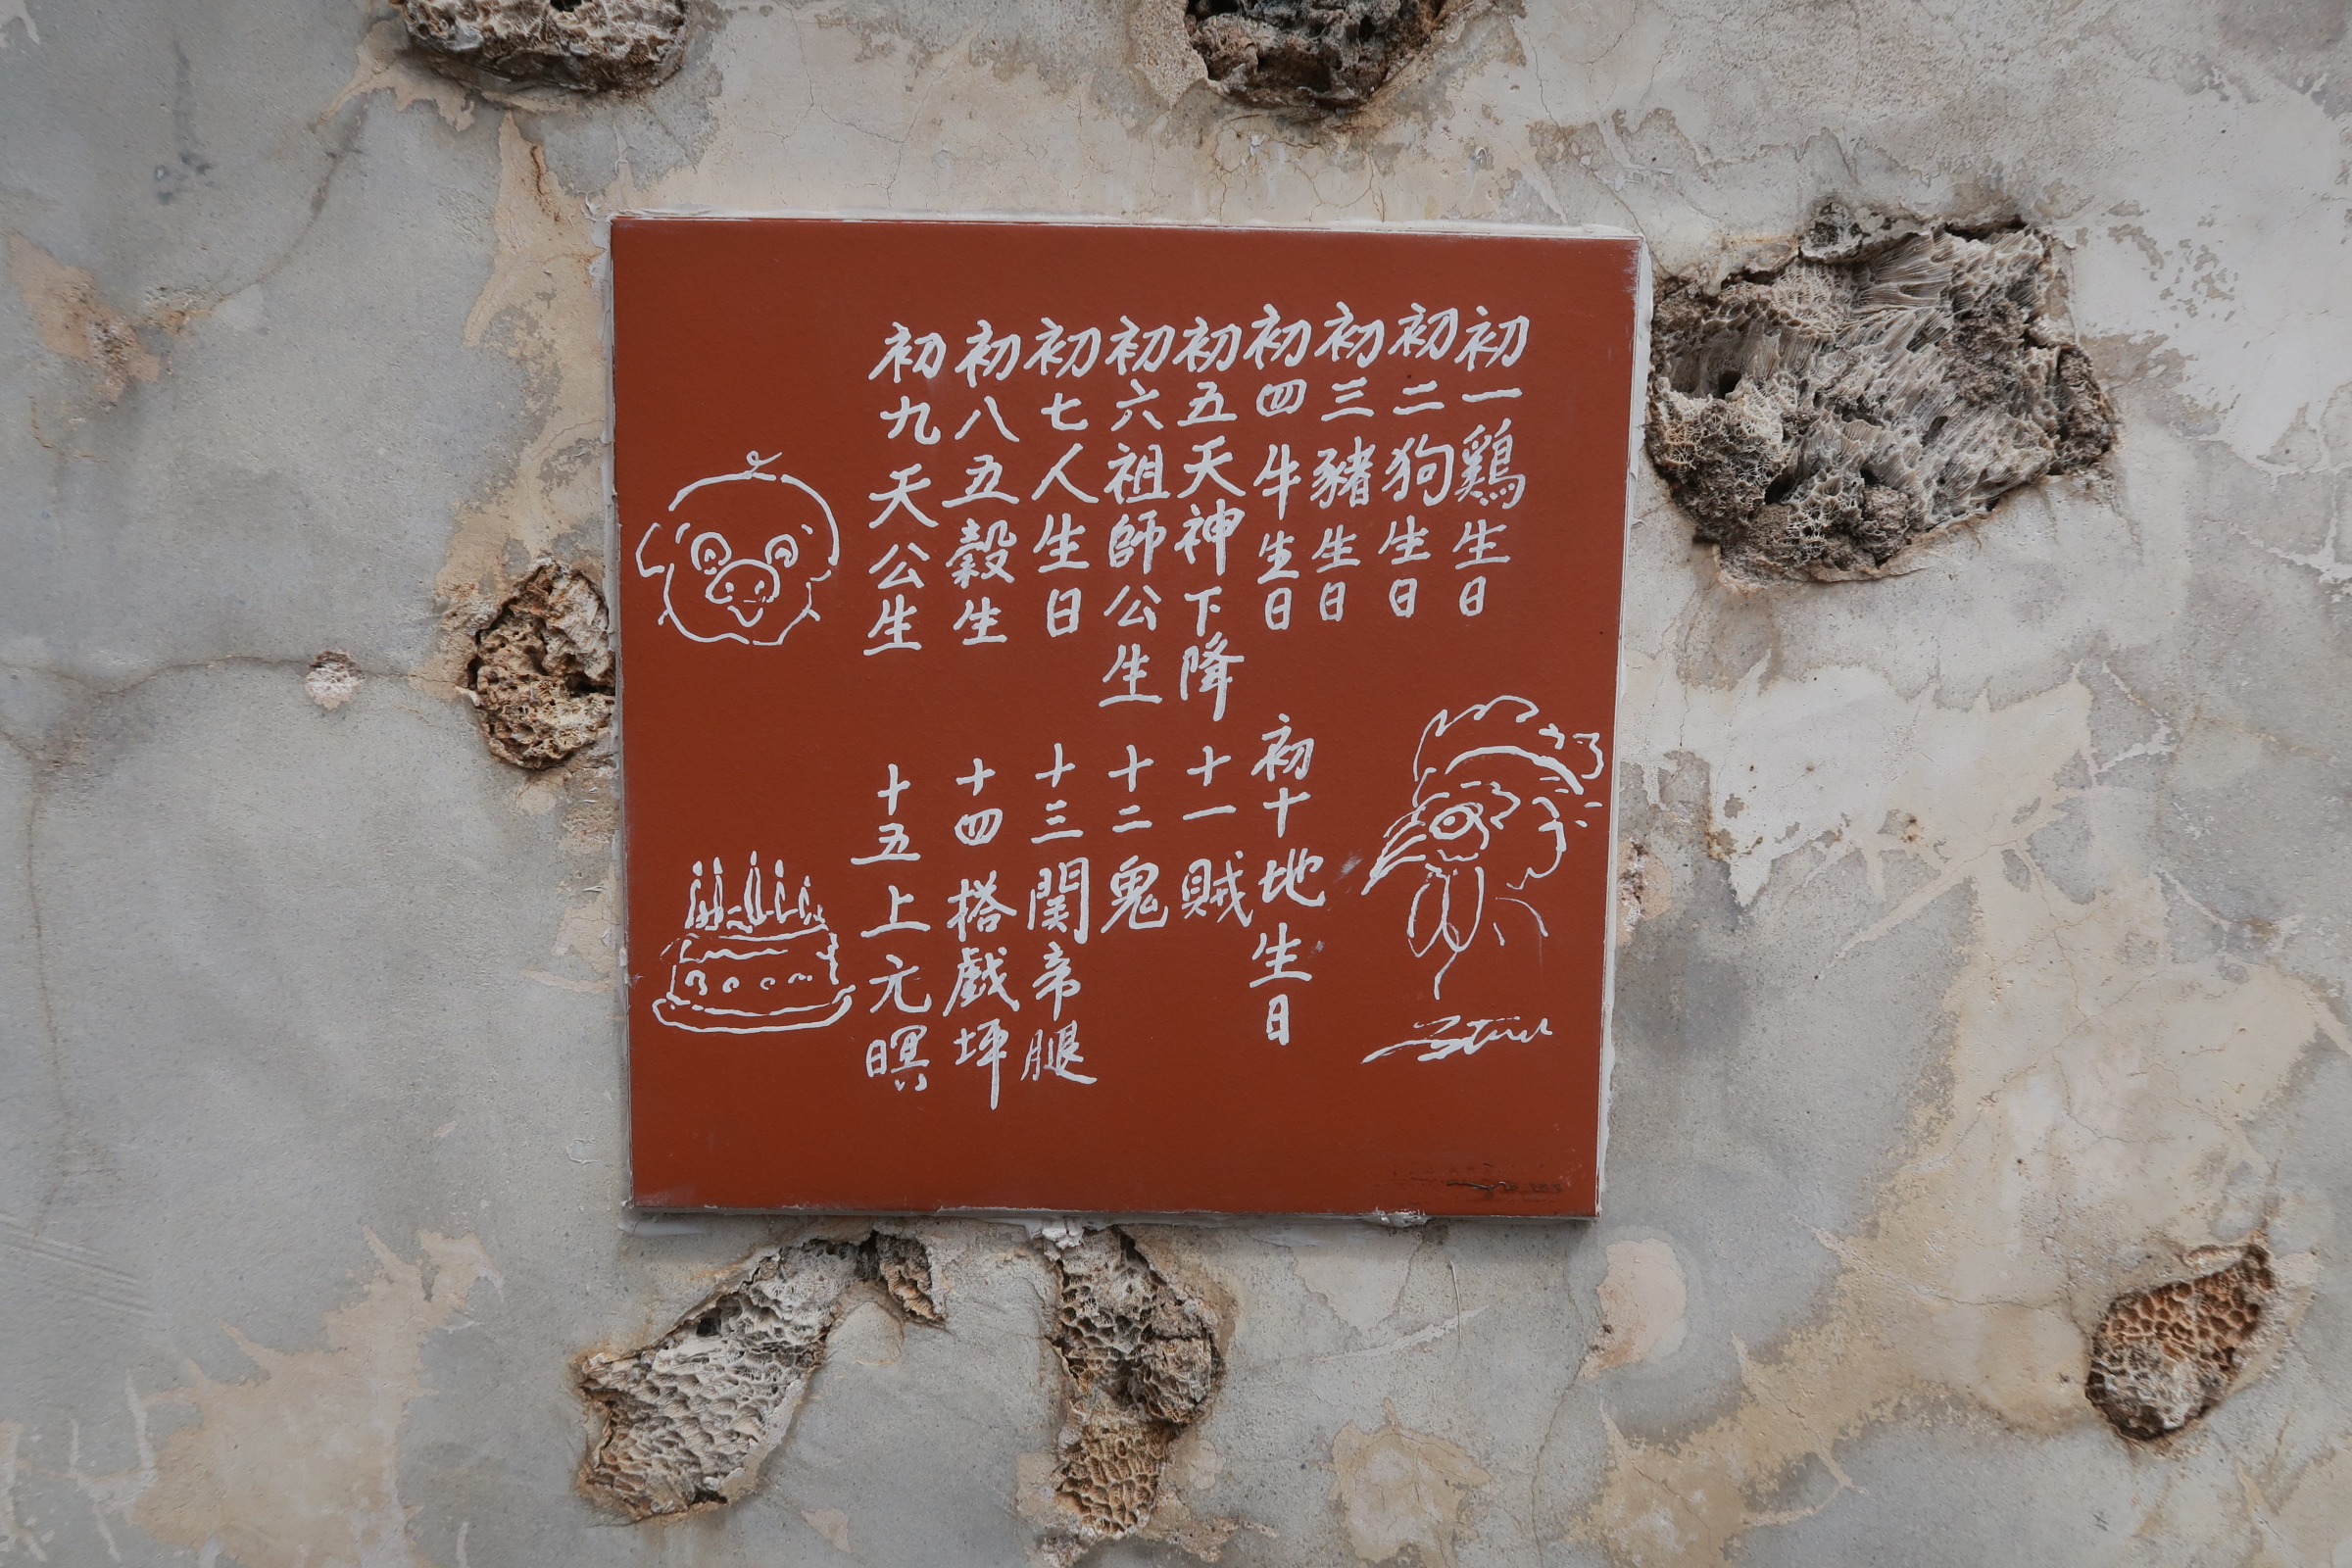 初一鷄生日
初二狗生日
初三豬生日
初四牛生日
初五天神下降
初六祖師公生
初七人生日
初八五穀生
初九天公生
初十地生日
十一賊
十二鬼
十三関帝腿
十四搭戲坪
十五上元暝